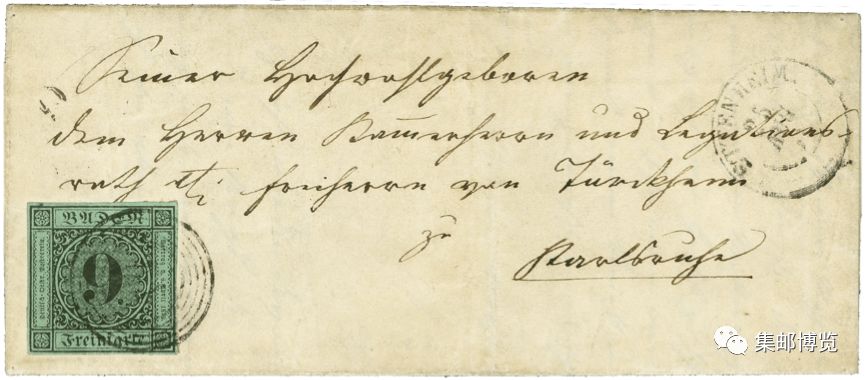 Seiner Hochwohlgeboren
dem Herrn Kammerherrn und Legations-
rath Freiherrn von Türckheim
zu
Karlsruhe
ETTENHEIM.
25
BADEN
9.
Freimarke
集邮博览